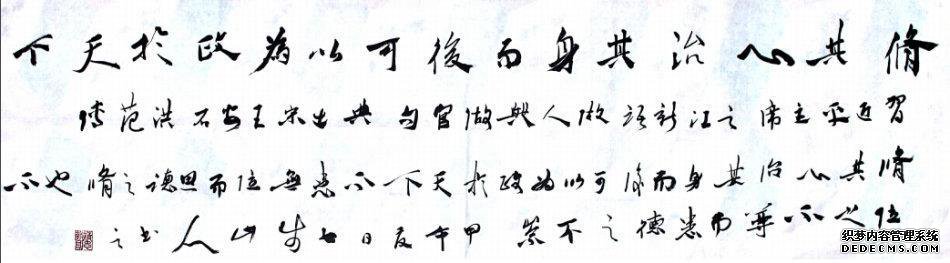 脩其心治其身而後可以為政於天下
習近平主席之江新語做人與做官句典出宋王安石洪範傳
脩其心治其身而後可以為政於天下不患無位而思德之脩也不
位之不尊而患德之不崇甲午夏日山人書之
织梦内容管理系统
DEDECMS.COM